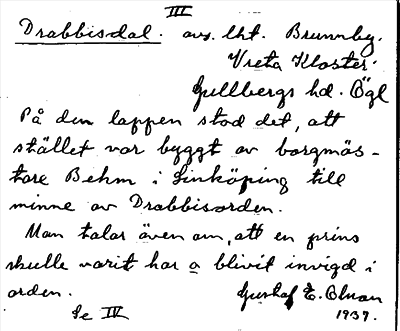 III
Drabbisdal. avs. lht. Brunnby.
Vreta Kloster.
Gullbergs hd. Ögl
På den lappen stod det, att
stället var byggt av borgmäs-
tare Behm i Linköping till
minne av Drabbisorden.
Man talar även om, att en prins
skulle varit här o blivit invigd i
orden. Gustaf E.
Se IV 1937.